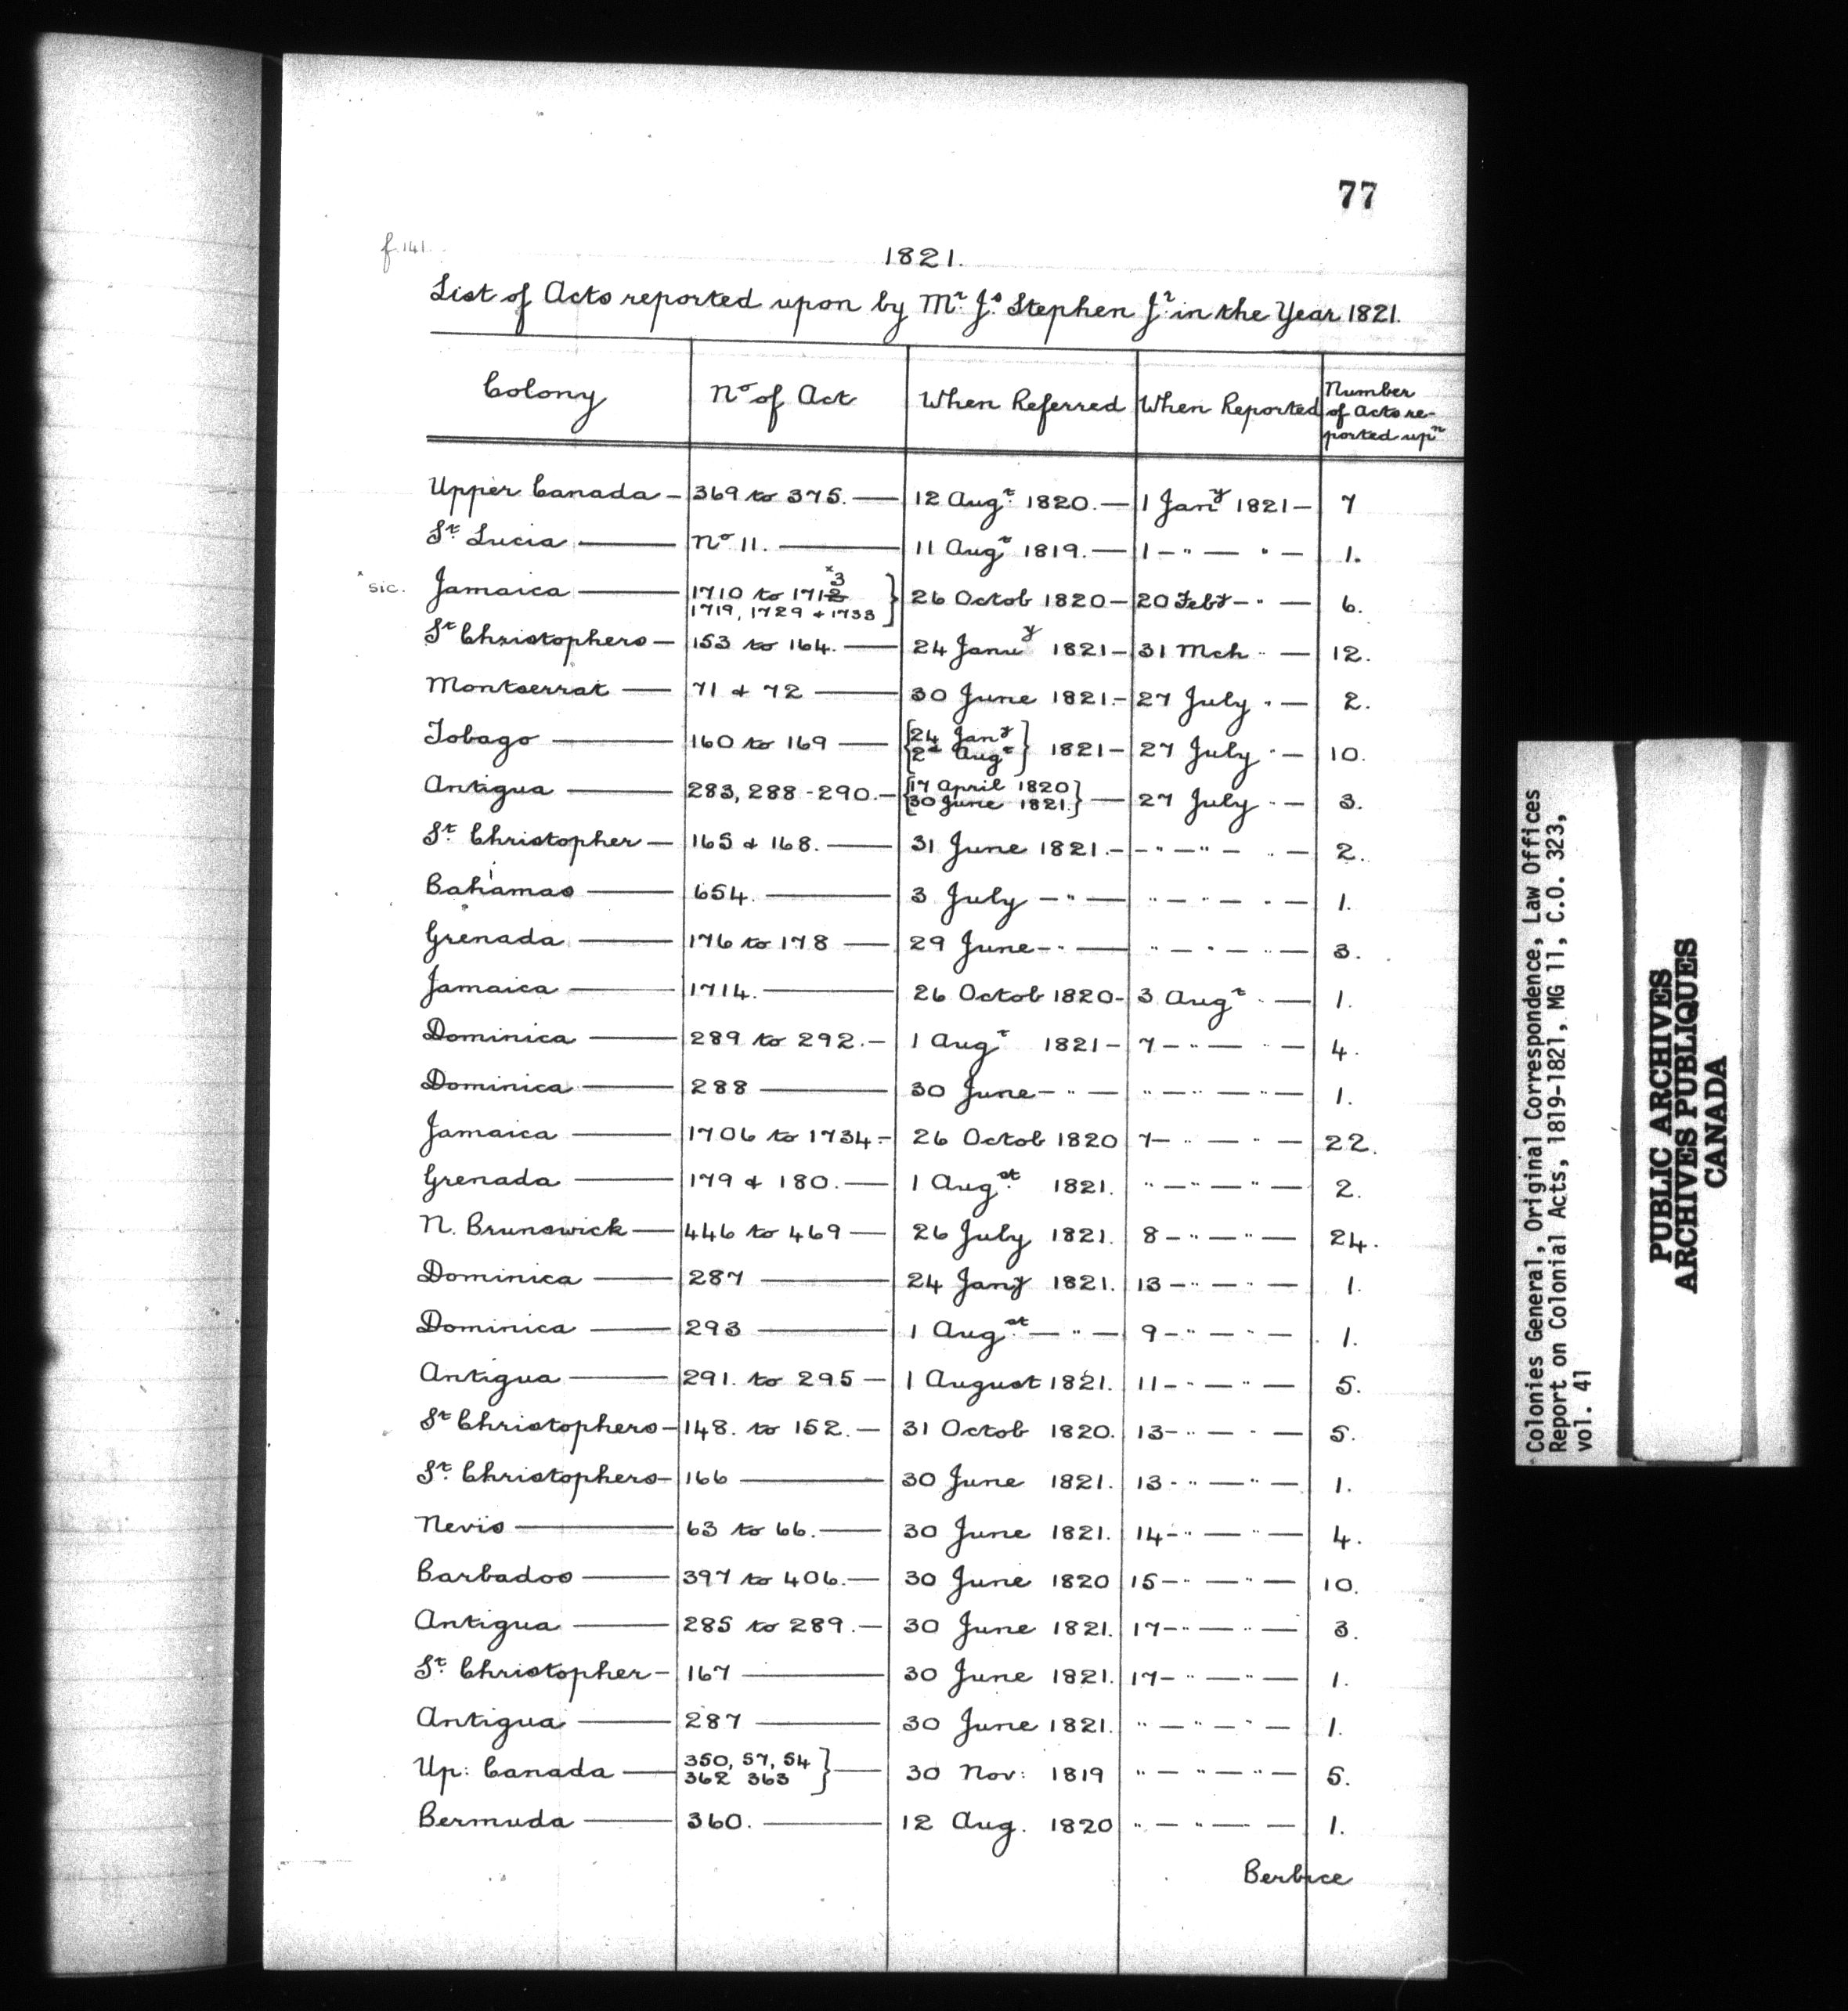 77
f. 141.
1821.
List of Acts reported upon by Mr. Js. Stephen Jr in the Year 1821.
Colony | No of Act | When Referred | When Reported | Number of Acts re-ported upn
Upper Canada – 369 to 375. — 12 Augt. 1820. — 1 Jany 1821 – 7
St. Lucia — No 11. — 11 Augt 1819. — 1 – " — " – 1.
x sic. Jamaica — 1710 to 1712 x3
1719, 1729 + 1733 } 26 Octob 1820 – 20 Feby – " — 6.
St Christophers – 153 to 164. — 24 Janu y 1821 – 31 Mch " — 12.
Montserrat — 71 + 72 — 30 June 1821. – 27 July " — 2.
Tobago — 160 to 169 — {24 Jany
2d Augt} 1821 – 27 July " – 10.
Antigua — 283, 288 - 290. – {17 April 1820
30 June 1821.} — 27 July " – 3.
St. Christopher – 165 + 168. — 31 June 1821. – – " – " – " – 2.
Bahamas — 654. — 3 July – " — " – " – " – 1.
Grenada — 176 to 178 — 29 June – " — " – " – " – 3.
Jamaica — 1714. — 26 Octob 1820 – 3 Augt " — 1.
Dominica — 289 to 292. – 1 Augt 1821 – 7 – " — " – 4.
Dominica — 288 — 30 June – " – " – " — " – 1.
Jamaica — 1706 to 1734 – 26 Octob 1820 7 – " — " – 22.
Grenada — 179 + 180. — 1 Augst. 1821. " – " – " – 2.
N. Brunswick — 446 to 469 — 26 July 1821. 8 – " – " – 24.
Dominica — 287 — 24 Jany 1821. 13 – " – " – 1.
Dominica — 293 — 1 Augst. — " – 9 – " – " – 1.
Antigua — 291. to 295 – 1 August 1821. 11 – " — " – 5.
St Christophers – 148. to 152. – 31 Octob 1820. 13 – " — " – 5.
St. Christophers – 166 — 30 June 1821. 13 – " — " – 1.
Nevis — 63 to 66. — 30 June 1821. 14 – " — " – 4.
Barbados — 397 to 406. — 30 June 1820 15 – " — " – 10.
Antigua — 285 to 289. – 30 June 1821. 17 – " — " – 3.
St. Christopher – 167 — 30 June 1821. 17 – " — " – 1.
Antigua — 287 — 30 June 1821. " – " – " – 1.
Up: Canada — 350, 57, 54
362 363 } — 30 Nov: 1819 " – " – " – 5.
Bermuda — 360. — 12 Aug. 1820 " – " — – 1.
Berbice
Colonies General, Original Correspondence, Law Offices
Report on Colonial Acts, 1819-1821, MG 11, C.O. 323,
vol. 41
PUBLIC ARCHIVES
ARCHIVES PUBLIQUES
CANADA